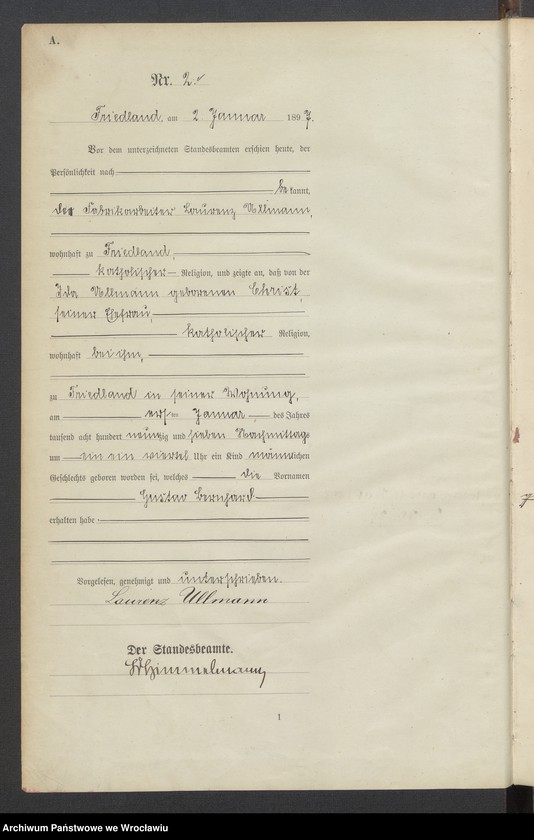 A.
Nr. 2.
Friedland, am 2. Januar 1897.
Vor dem unterzeichneten Standesbeamten erschien heute, der
Persönlichkeit nach
be kannt,
der Fabrikarbeiter Laurenz Ullmann,
wohnhaft zu Friedland,
katholischer Religion, und zeigte an, daß von der
Ida Ullmann geborenen Christ,
seiner Ehefrau,
katholischer Religion,
wohnhaft bei ihm,
zu Friedland in seiner Wohnung,
am ersten Januar des Jahres
tausend acht hundert neunzig und sieben Nachmittags
um ein ein viertel Uhr ein Kind männlichen
Geschlechts geboren worden sei, welches die Vornamen
Gustav Bernhard
erhalten habe
Vorgelesen, genehmigt und unterschrieben.
Laurenz Ullmann
Der Standesbeamte.
Himmelmann
1
Archiwum Państwowe we Wrocławiu